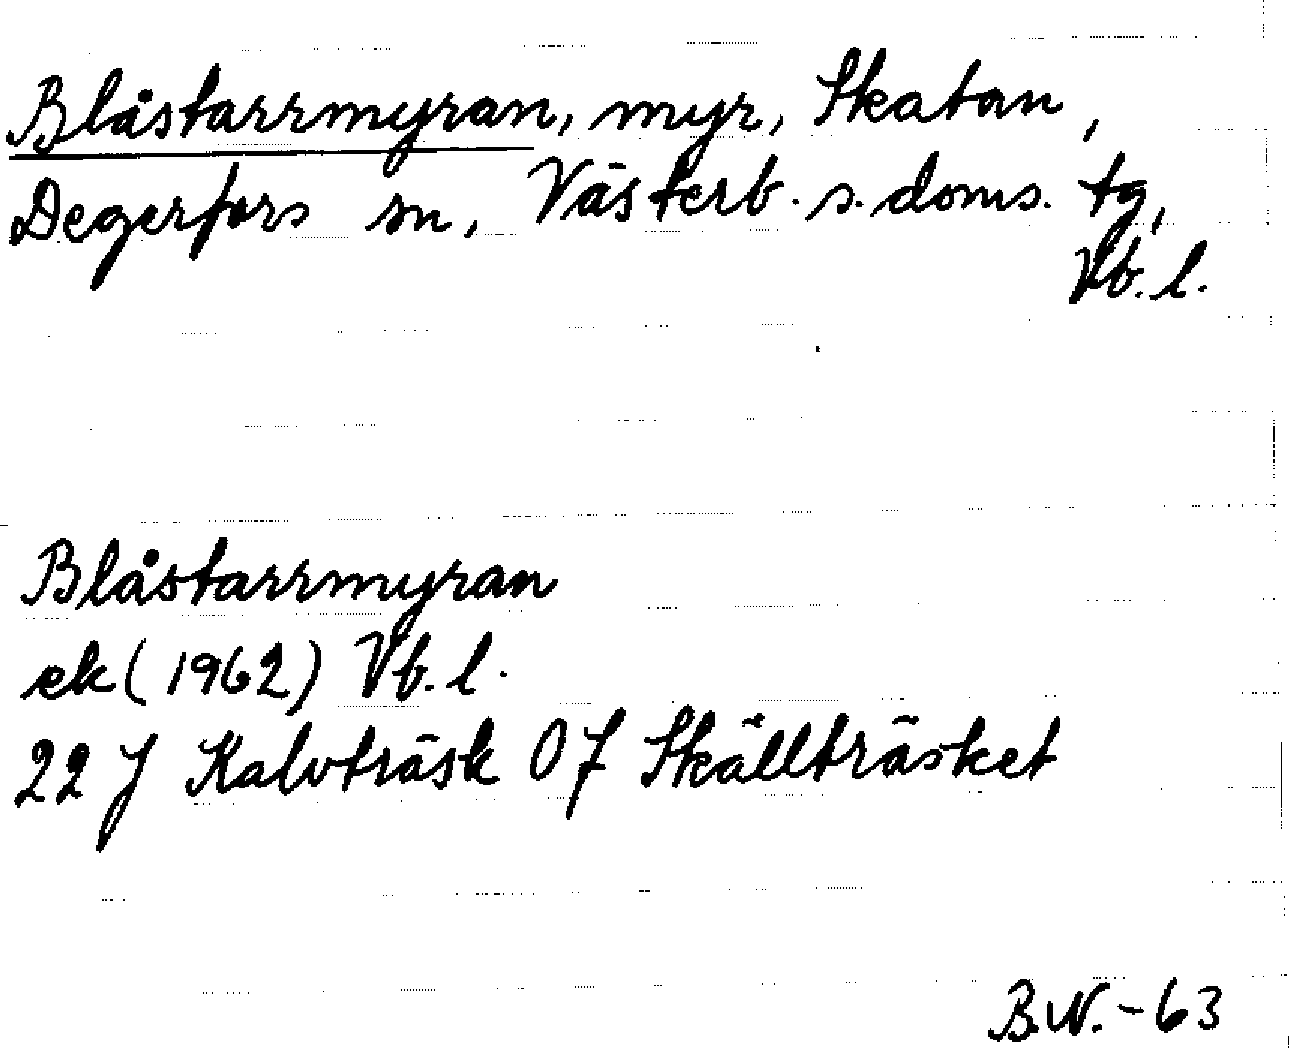 Blåstarrmyran, myr, Skatan,
Degerfors sn, Västerb. s. doms. tg,
Vb. l.
Blåstarrmyran
ek (1962) Vb. l.
22 J Kalvträsk 0f Skällträsket
B.N. - 63